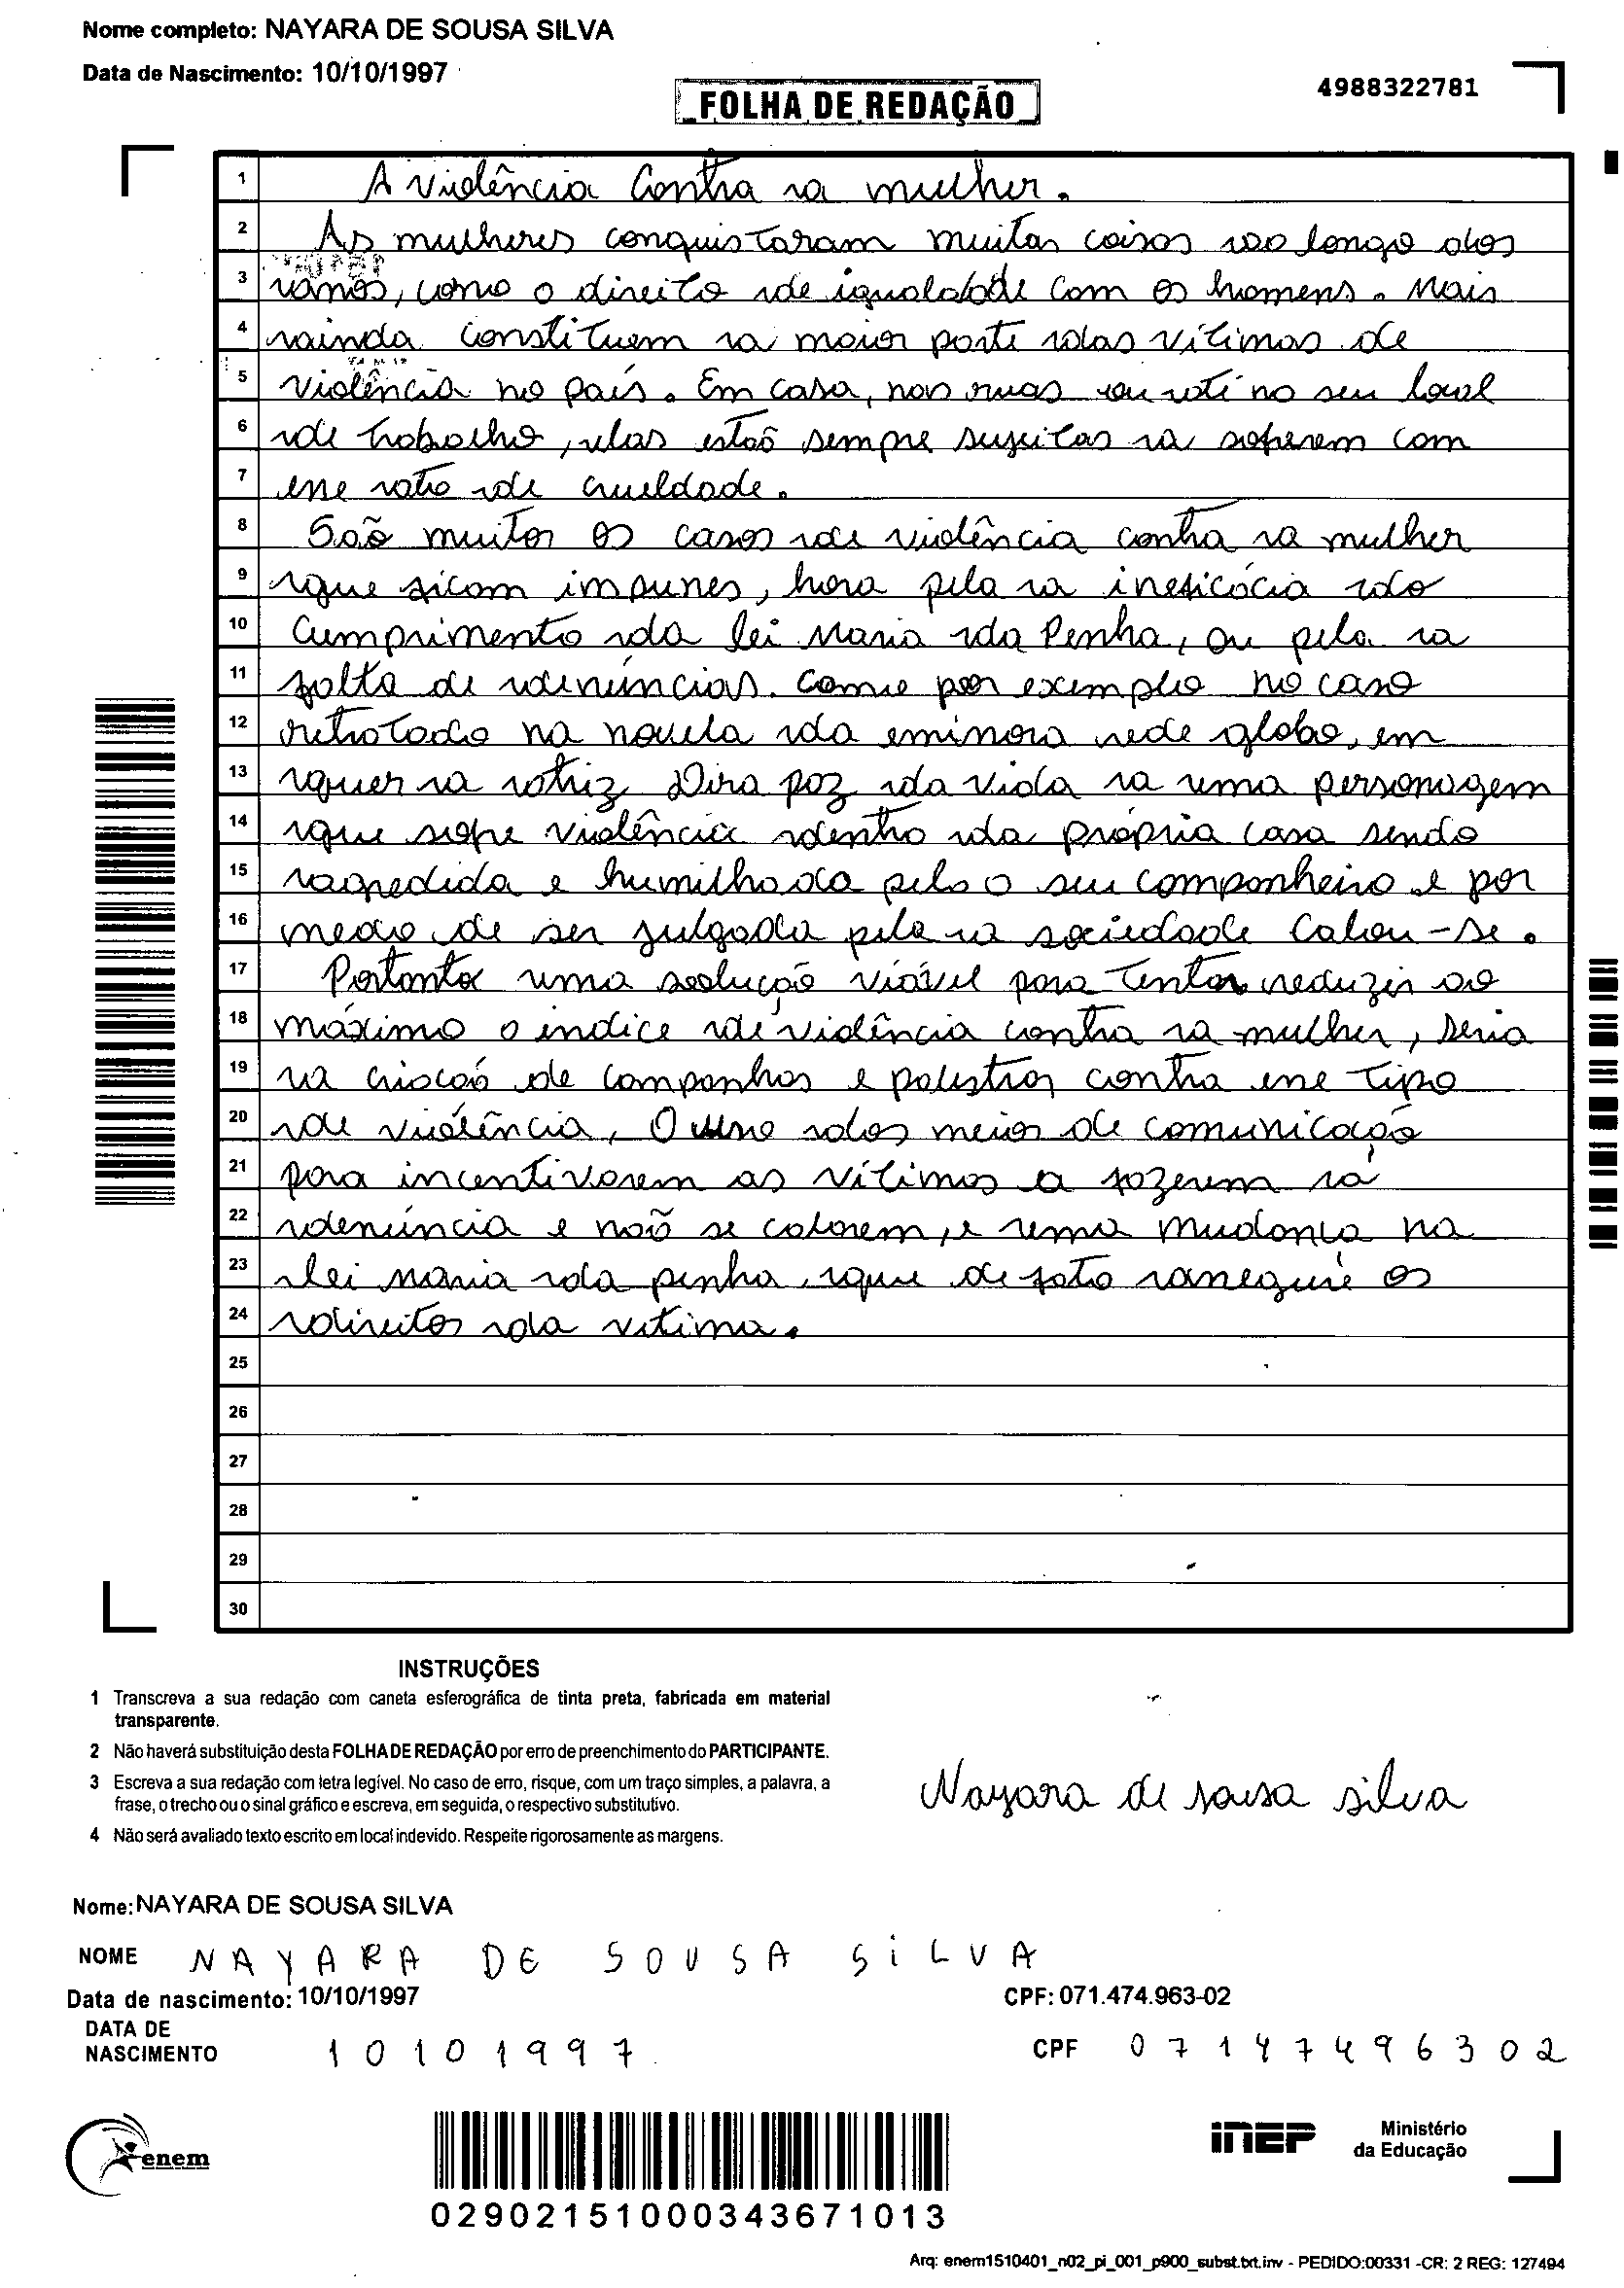 Nome completo: NAYARA DE SOUSA SILVA
Data de Nascimento: 10/10/1997
4988322781
FOLHA DE REDAÇÃO
1 A violência contra a mulher.
2 As mulheres conquistaram muitas coisas ao longo dos
3 anos, como o direito de igualdade com os homens. Mais
4 ainda constituem a maior parte das vítimas de
5 violência no país. Em casa, nas ruas ou até no seu local
6 de trabalho, elas estaõ sempre sujeitas a soferem com
7 esse ato de crueldade.
8 Saõ muitos os casos de violência contra a mulher
9 que ficam impunes, hora pela a ineficácia do
10 Cumprimento da lei Maria da Penha, ou pela a
11 falta de denúncias. Como por exemplo no caso
12 retratado na novela da eminora rede globo, em
13 quer a atriz Dira paz da vida a uma personagem
14 que sofre violência dentro da própria casa sendo
15 agredida e humilhada pelo o seu companheiro e por
16 medo de ser julgada pela a sociedade Calou-se.
17 Portanto uma solução viável para tentar reduzir ao
18 máximo o índice de violência contra a mulher, seria
19 a criacaõ de companhas e palestras contra esse tipo
20 de violência, O uso dos meios de comunicação
21 para incentivarem as vítimas a fazerem a
22 denúncia e naõ se calarem, e uma mudança na
23 lei Maria da penha, que de fato assegure os
24 direitos da vitima.
25
26
27
28
29
30
INSTRUÇÕES
1 Transcreva a sua redação com caneta esferográfica de tinta preta, fabricada em material
transparente.
2 Não haverá substituição desta FOLHA DE REDAÇÃO por erro de preenchimento do PARTICIPANTE.
3 Escreva a sua redação com letra legível. No caso de erro, risque, com um traço simples, a palavra, a
frase, o trecho ou o sinal gráfico e escreva, em seguida, o respectivo substitutivo.
4 Não será avaliado texto escrito em local indevido. Respeite rigorosamente as margens.
Nayara de sousa silva
Nome: NAYARA DE SOUSA SILVA
NOME NAYARA DE SOUSA SiLVA
Data de nascimento: 10/10/1997 CPF: 071.474.963-02
DATA DE
NASCIMENTO 10101997 CPF 07147496302
enem
02902151000343671013
INEP
Ministério
da Educação
Arq: enem1510401_n02_pi_001_p900_subst.txt.inv - PEDIDO:00331 -CR: 2 REG: 127494